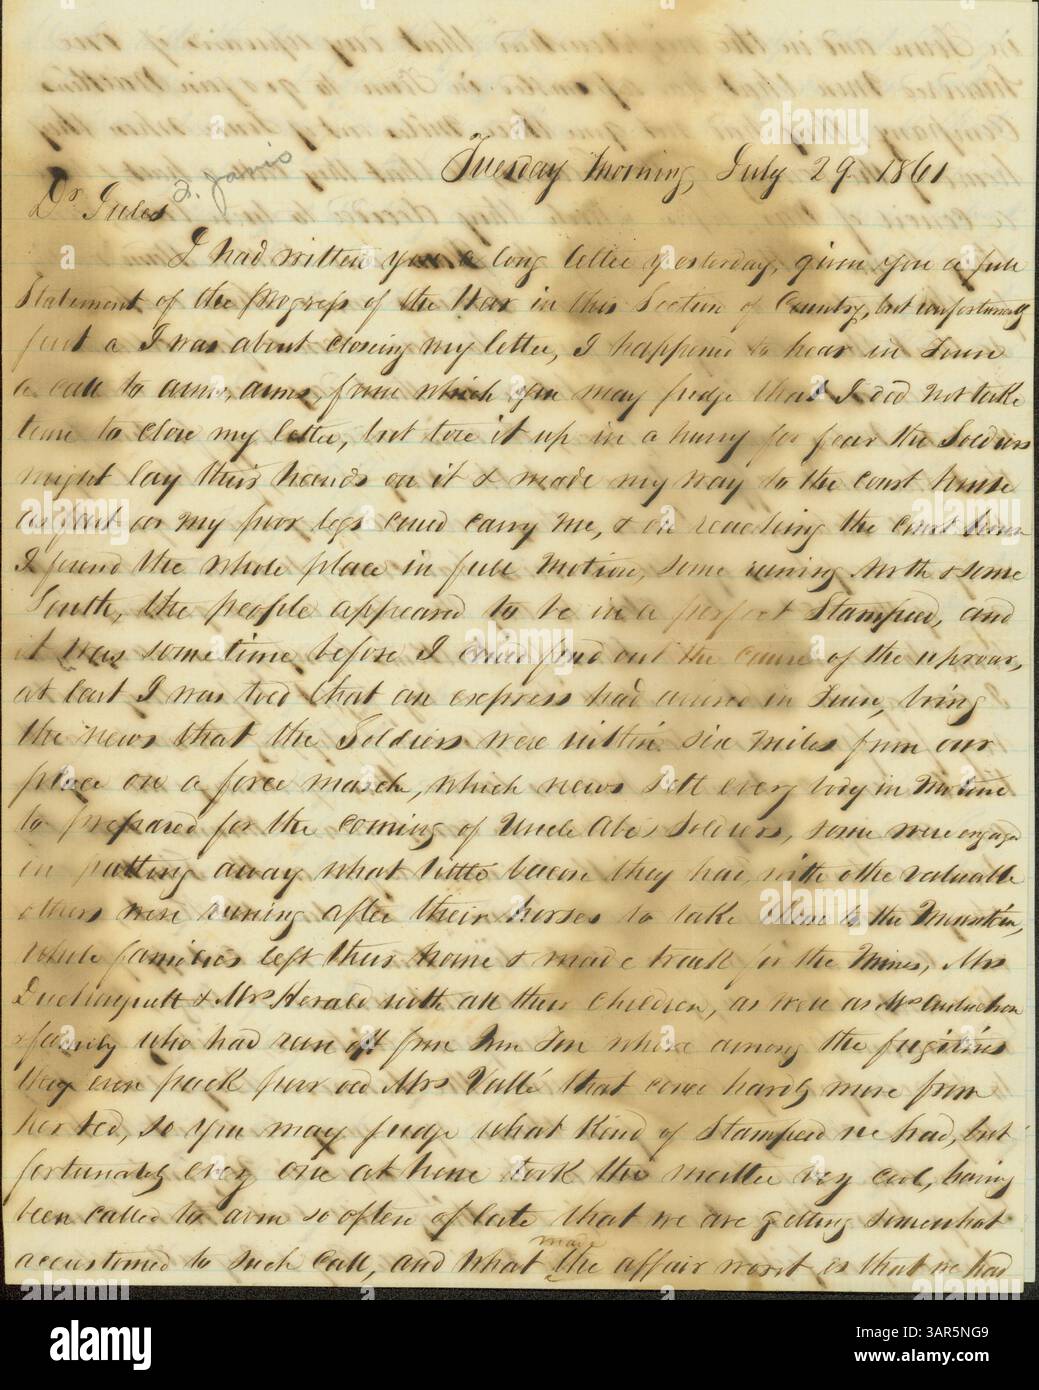 Tuesday Morning, July 29 1861
Dr Jules F. Jarvis
I had written you a long letter yesterday, given you a full
Statement of the Progress of the War in this Section of Country, but unfortunately
just a I was about closing my letter, I happened to hear in Town
a call to arms, arms, from which you may judge that I did not take
time to close my letter, but tore it up in a hurry for fear the Soldiers
might lay their hands on it & made my way to the court house
as fast as my poor legs could carry me, & on reaching the court house
I found the whole place in full motion, some runing North & some
South, the people appeared to be in a perfect Stampeed, and
it was sometime before I could find out the cause of the uproar,
at last I was told that an express had arrived in Town, bring
the news that the Soldiers were within six miles from our
place on a force march, which news sett every body in motion
to prepared for the coming of Uncle Abe's Soldiers, some were engaged
in putting away what little bacon they had, with othe valuable
others were runing after their horses to take them to the Mountain,
whole families left their home & made track for the Mines, Mrs
& Mrs Herald with all their children, as well as Mrs
& family who had run off from where among the fugitives
they even pack poor old Mrs Vallé that could hardly move from
her bed, so you may judge what kind of Stampeed we had, but
fortunately every one at home took the matter very cool, having
been called to arm so often of late that we are getting somewhat
accustomed to such call, and what made the affair worst is that we had
alamy
Image ID: 3AR5NG9
www.alamy.com